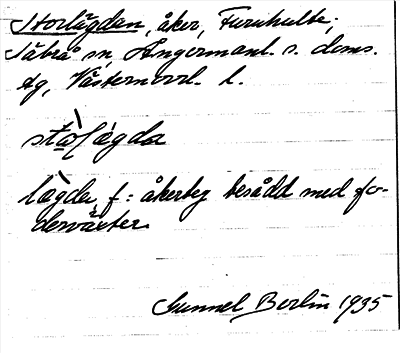 Storlägdan, åker, Furuhult,
Säbrå sn, Ångermanl. s. doms.
dg, Västernorrl. l.
stòrlǽgda
lǽgda, f: åkerteg besådd med fo-
derväxter.
Gunnel Berlin 1935